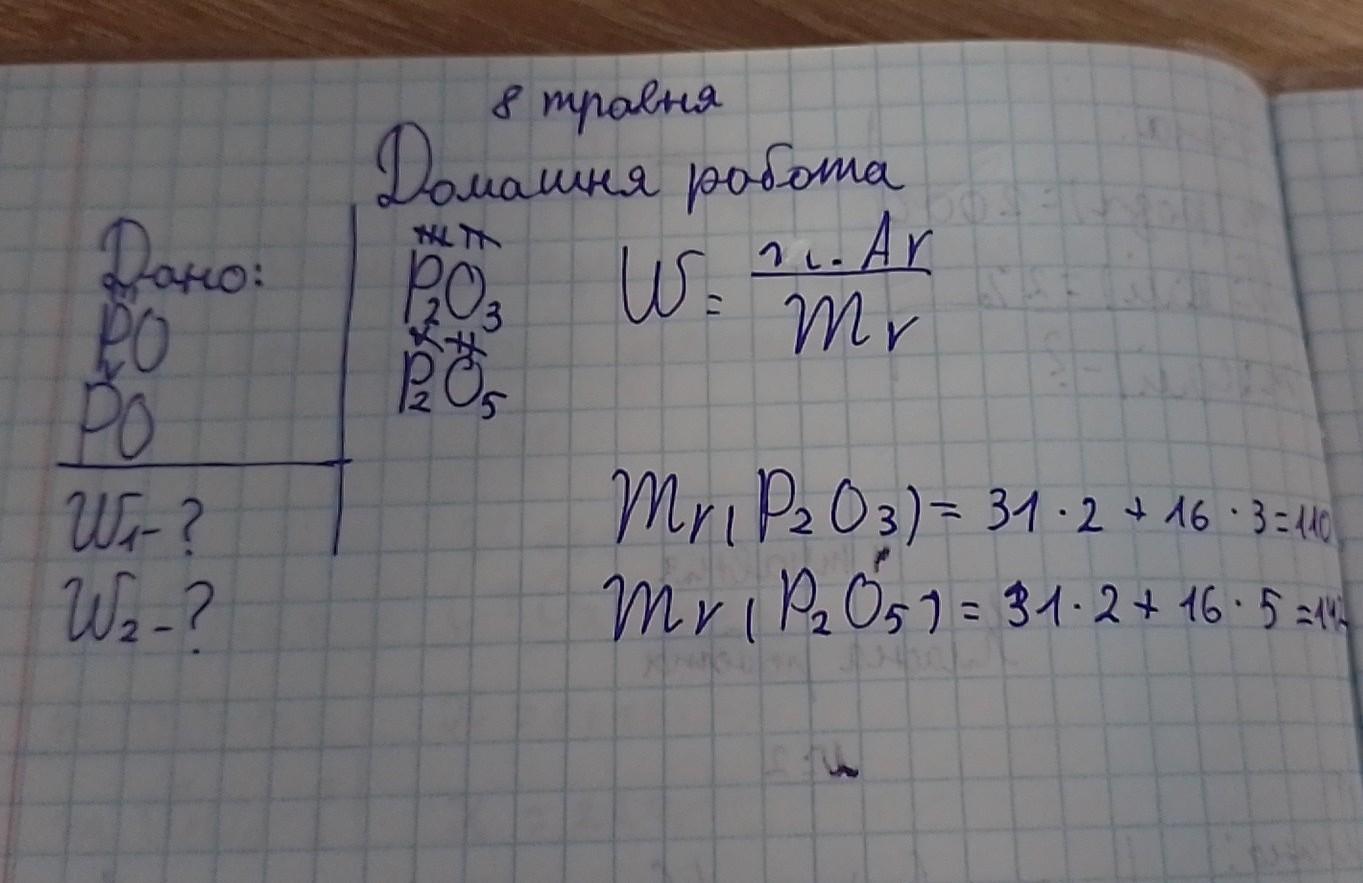 8 травня
Домашня робота
Дано:
PO
PO
W₁-?
W₂-?
III II
P₂O₃
V II
P₂O₅
W = n. Ar / Mr
Mr(P₂O₃) = 31·2 + 16·3=110
Mr(P₂O₅) = 31·2 + 16·5=142